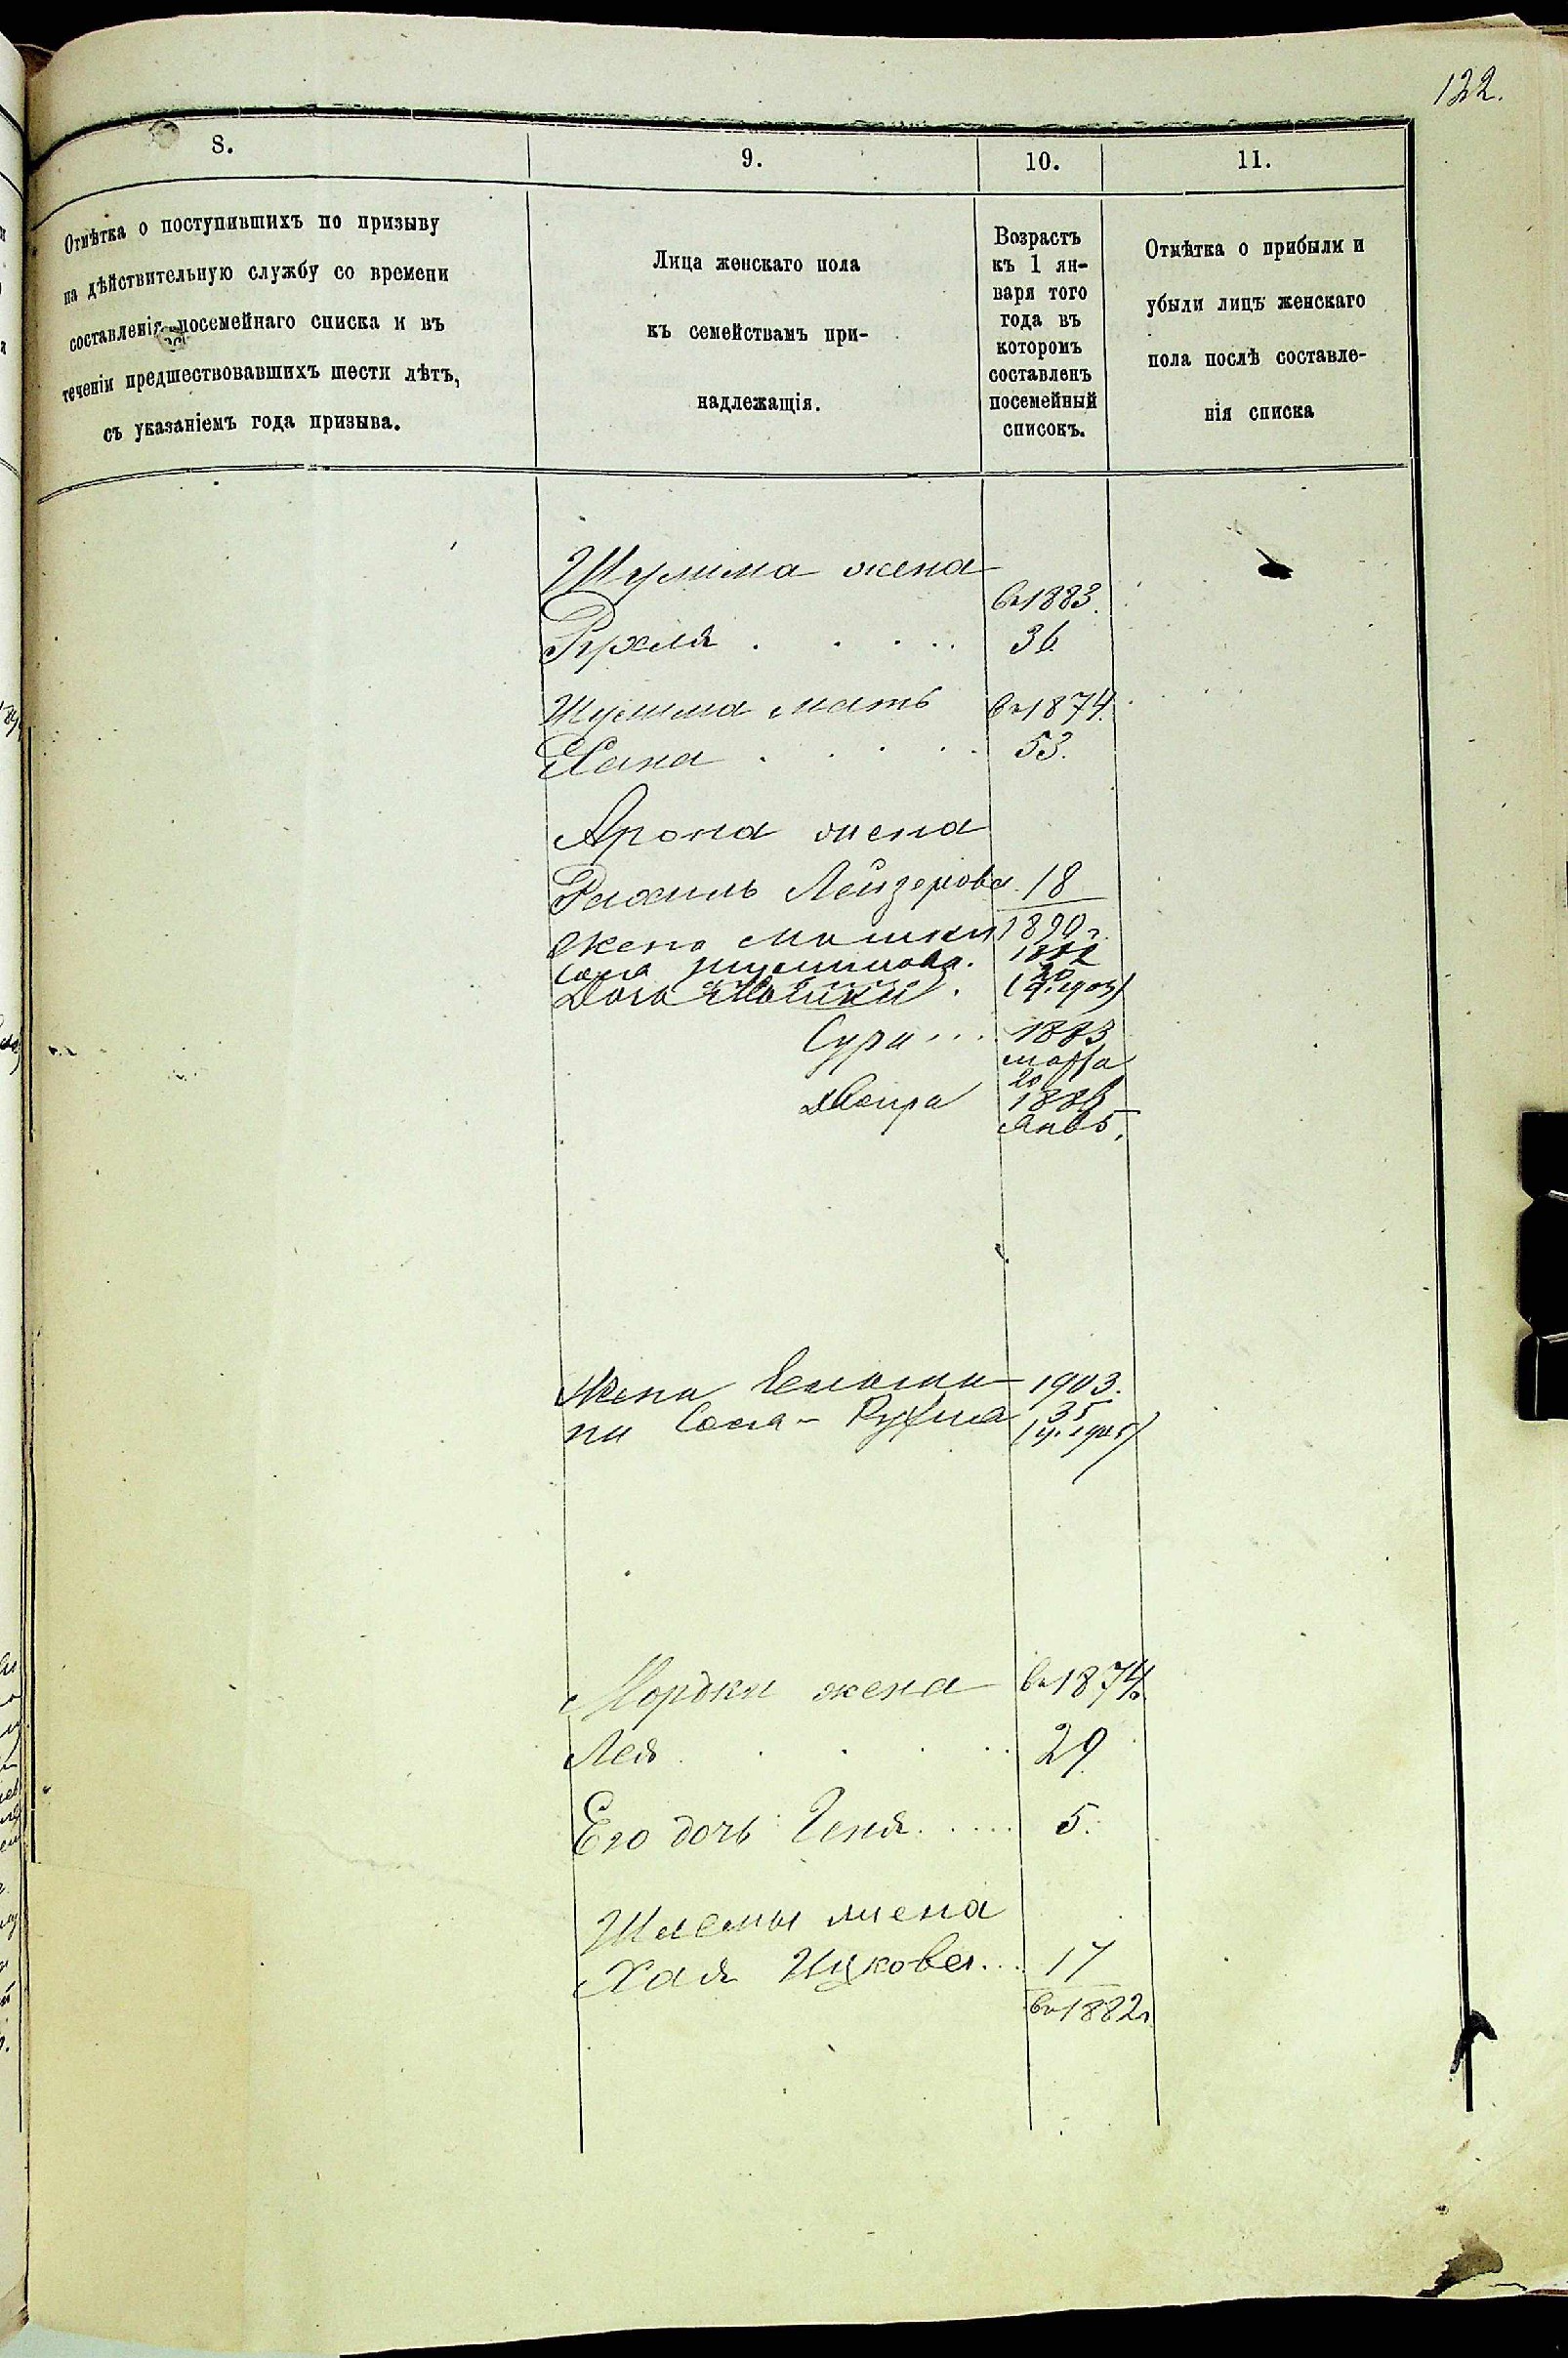 122.
8.
9.
10.
11.
Отмѣтка о поступившихъ по призыву
на дѣйствительную службу со времени
составленія посемейнаго списка и въ
теченіи предшествовавшихъ шести лѣтъ,
съ указаніемъ года призыва.
Лица женскаго пола
къ семействамъ при-
надлежащія.
Возрастъ
къ 1 ян-
варя того
года въ
которомъ
составленъ
посемейный
списокъ.
Отмѣтка о прибыли и
убыли лицъ женскаго
пола послѣ составле-
нія списка
Шулима жена
въ 1883.
Рухля . . . . . 36
Шулима мать въ 1874.
Хана . . . . . 53.
Арона жена
Рахиль Лейзерова 18
Жена Мошки 1890 г.
Шулимова. 1882
20
Дочь Мошки. (ч. 1903)
Сура ... 1883
марта
20
Двойра
Янв 5.
Жена 1903.
35
на Сося-Рухля
Мордки жена въ 1874.
Лея . . . . . 29
Его дочь Геня ..... 5.
Шлемы жена
Хая Ицкова ... 17
въ 1882 г